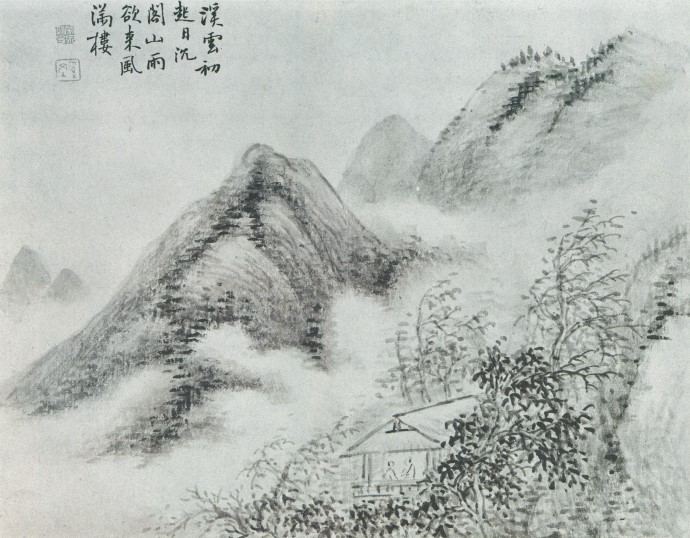 溪雲初
起日沉
閣山雨
欲来風
滿樓